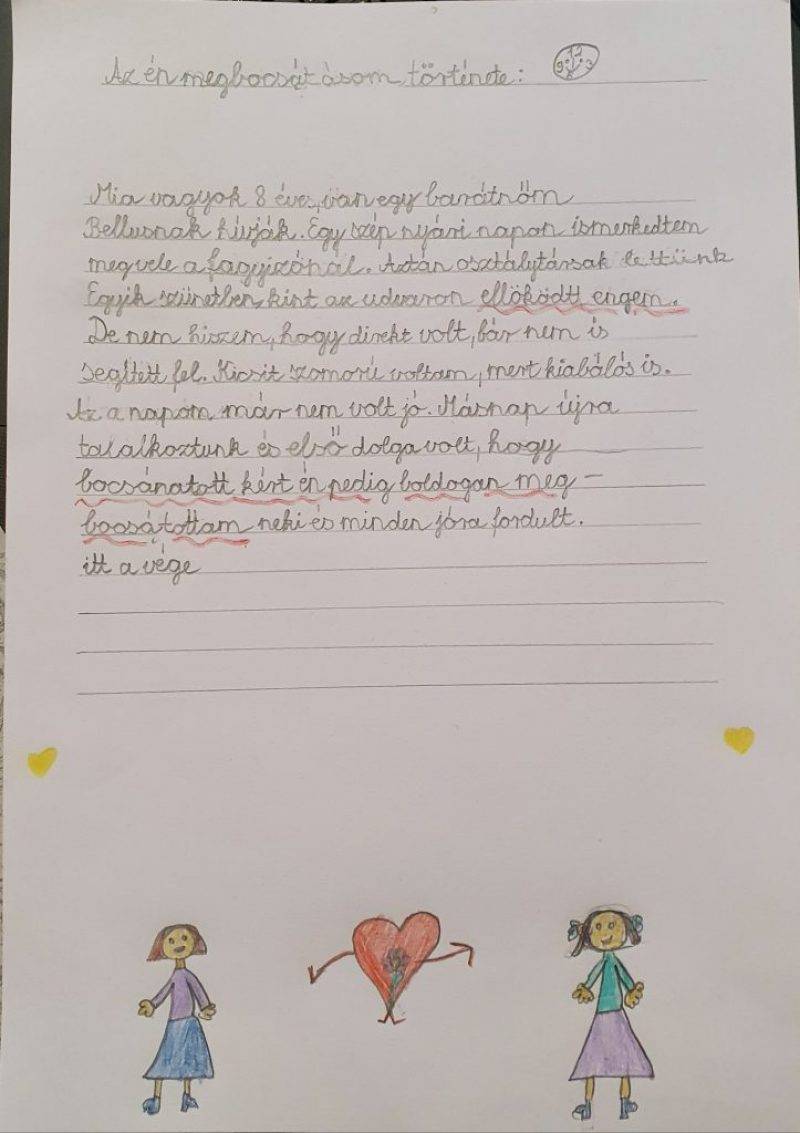 Az én megbocsátásom története:
12
9 3
Mia vagyok 8 éves, van egy barátnőm
Bellusnak hívják. Egy szép nyári napon ismerkedtem
meg vele a fagyizónál. Aztán osztálytársak lettünk
Egyik szünetben, kint az udvaron ellöködtt engem.
De nem hiszem, hogy direkt volt, bár nem is
segített fel. Kicsit szomorú voltam, mert kiabálós is.
Az a napom már nem volt jó. Másnap újra
talalkoztunk és első dolga volt, hogy
bocsánatott kért én pedig boldogan meg-
bocsátottam neki és minden jóra fordult.
itt a vége